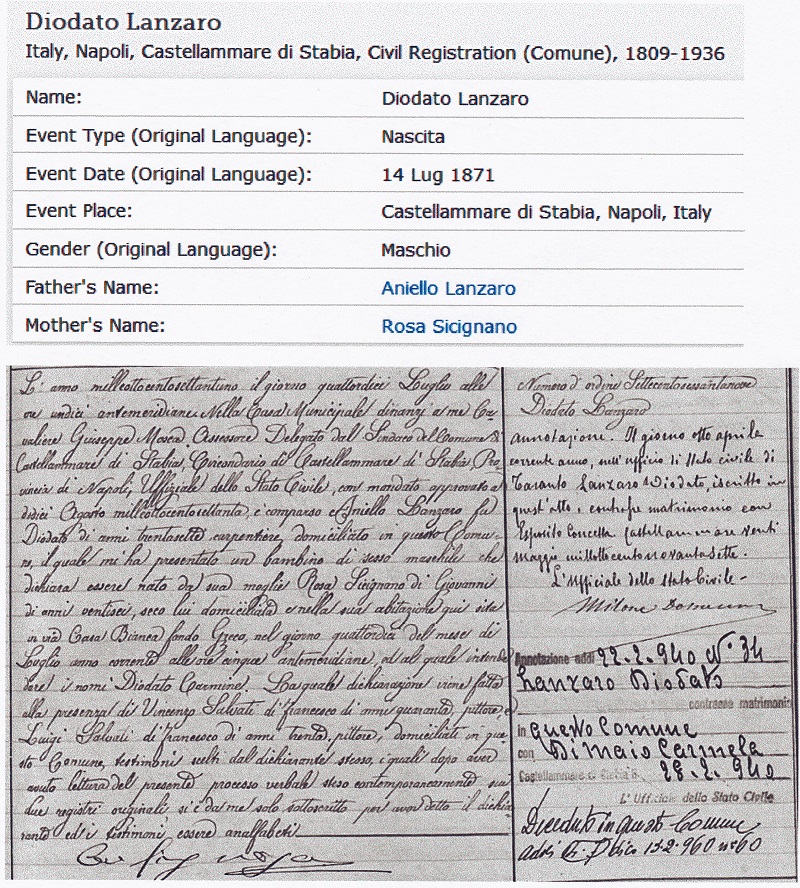 Diodato Lanzaro
Italy, Napoli, Castellammare di Stabia, Civil Registration (Comune), 1809-1936
Name: Diodato Lanzaro
Event Type (Original Language): Nascita
Event Date (Original Language): 14 Lug 1871
Event Place: Castellammare di Stabia, Napoli, Italy
Gender (Original Language): Maschio
Father's Name: Aniello Lanzaro
Mother's Name: Rosa Sicignano
L'anno milleottocentosettantuno il giorno quattordici Luglio alle
ore undici antemeridiane Nella Casa Municipale dinanzi a me Ca-
valiere Giuseppe Mosca Assessore Delegato dal Sindaco del Comune di
Castellammare di Stabia, Circondario di Castellammare di Stabia Pro-
vincia di Napoli, Uffiziale dello Stato Civile, con mandato approvato a'
dodici Agosto milleottocentosettanta, è comparso Aniello Lanzaro fu
Diodato di anni trentasette carpentiere, domiciliato in questo Comu-
ne, il quale mi ha presentato un bambino di sesso maschile che
dichiara essere nato da sua moglie Rosa Sicignano di Giovanni
di anni ventisei, seco lui domiciliata e nella sua abitazione qui sita
in via Casa Bianca fondo Greco, nel giorno quattordici del mese di
Luglio anno corrente alle ore cinque antemeridiane, ed al quale intende
dare i nomi Diodato Carmine. La quale dichiarazione viene fatta
alla presenza di Vincenzo Salvati di Francesco di anni quaranta, pittore, e
Luigi Salvati di Francesco di anni trenta, pittore, domiciliati in que-
sto Comune, testimoni scelti dal dichiarante stesso, i quali dopo aver
avuto lettura del presente processo verbale steso contemporaneamente sui
due registri originali si è da me solo sottoscritto per aver detto il dichia-
rante ed i testimoni essere analfabeti.
Numero d'ordine Settecentosessantanove
Diodato Lanzaro
annotazione. Il giorno otto aprile
corrente anno, nell'ufficio di Stato civile di
Taranto Lanzaro Diodato, iscritto in
quest'atto, contrasse matrimonio con
Esposito Concetta. Castellammare venti
maggio milleottocentonovantasette.
L'Ufficiale dello Stato Civile -
Milone
Annotazione addì 22.2.940 N° 34
Lanzaro Diodato
contrasse matrimonio
in questo Comune
con Di Maio Carmela
Castellammare di Stabia 28.2.940
L'Ufficiale dello Stato Civile
Deceduto in questo Comune
addì 13-2-960 n° 60